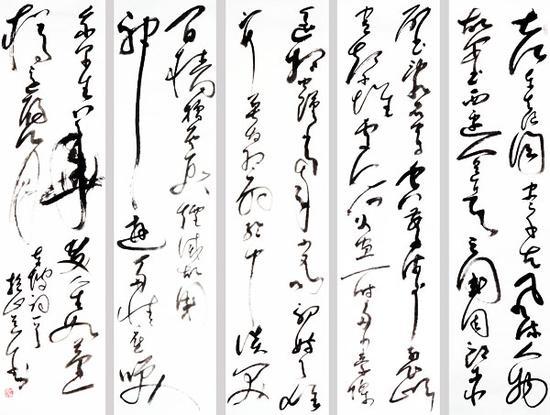 大江東去浪淘盡千古風流人物
故壘西邊人道是三國周郎赤
壁亂石穿空驚濤拍岸
千堆雪江山如畫一時多少豪傑
遙想公瑾當年小喬初嫁了雄
姿英發羽扇綸巾談笑
間檣櫓灰飛煙滅故國
神遊多情應笑
我早生華髮人生如夢
一樽還酹江月
東坡詞一首